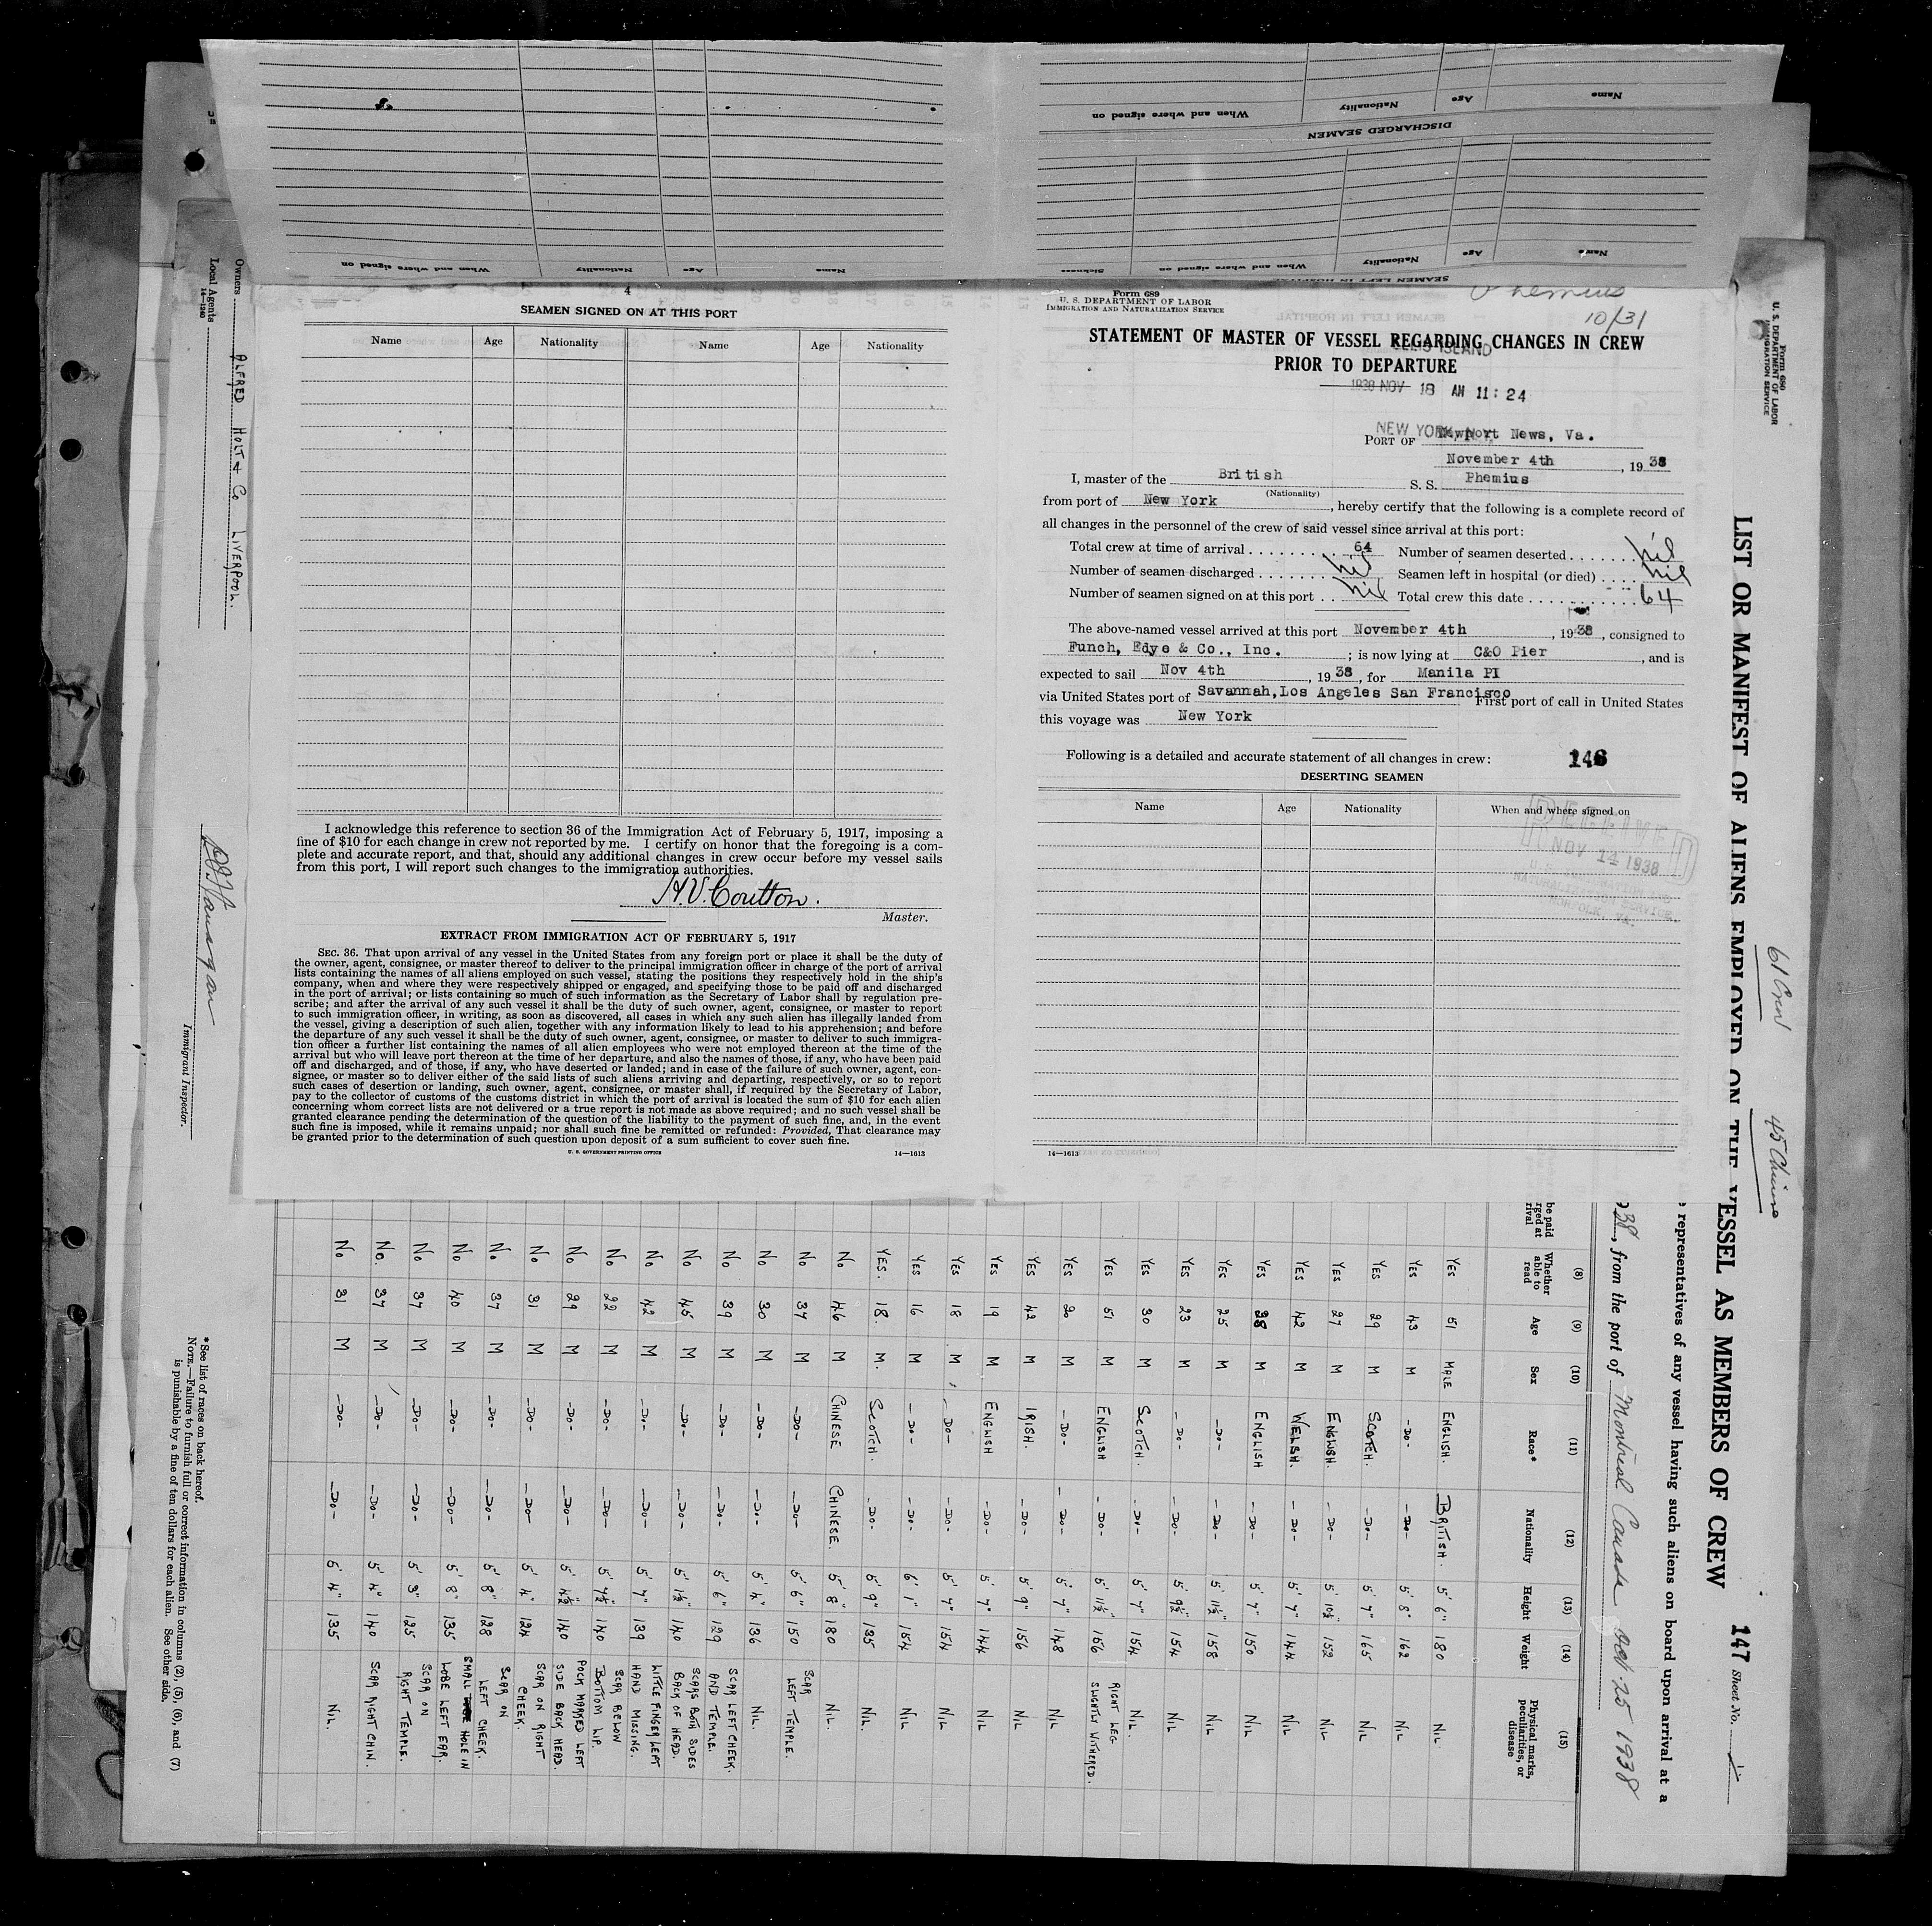 Name
Age
Nationality
When and where signed on
DISCHARGED SEAMEN
Name
Age
Nationality
When and where signed on
Name
Age
Nationality
When and where signed on
Sickness
SEAMEN LEFT IN HOSPITAL
4
SEAMEN SIGNED ON AT THIS PORT
Name Age Nationality Name Age Nationality
I acknowledge this reference to section 36 of the Immigration Act of February 5, 1917, imposing a
fine of $10 for each change in crew not reported by me. I certify on honor that the foregoing is a com-
plete and accurate report, and that, should any additional changes in crew occur before my vessel sails
from this port, I will report such changes to the immigration authorities.
H.V. Coulton.
Master.
EXTRACT FROM IMMIGRATION ACT OF FEBRUARY 5, 1917
SEC. 36. That upon arrival of any vessel in the United States from any foreign port or place it shall be the duty of
the owner, agent, consignee, or master thereof to deliver to the principal immigration officer in charge of the port of arrival
lists containing the names of all aliens employed on such vessel, stating the positions they respectively hold in the ship's
company, when and where they were respectively shipped or engaged, and specifying those to be paid off and discharged
in the port of arrival; or lists containing so much of such information as the Secretary of Labor shall by regulation pre-
scribe; and after the arrival of any such vessel it shall be the duty of such owner, agent, consignee, or master to report
to such immigration officer, in writing, as soon as discovered, all cases in which any such alien has illegally landed from
the vessel, giving a description of such alien, together with any information likely to lead to his apprehension; and before
the departure of any such vessel it shall be the duty of such owner, agent, consignee, or master to deliver to such immigra-
tion officer a further list containing the names of all alien employees who were not employed thereon at the time of the
arrival but who will leave port thereon at the time of her departure, and also the names of those, if any, who have been paid
off and discharged, and of those, if any, who have deserted or landed; and in case of the failure of such owner, agent, con-
signee, or master so to deliver either of the said lists of such aliens arriving and departing, respectively, or so to report
such cases of desertion or landing, such owner, agent, consignee, or master shall, if required by the Secretary of Labor,
pay to the collector of customs of the customs district in which the port of arrival is located the sum of $10 for each alien
concerning whom correct lists are not delivered or a true report is not made as above required; and no such vessel shall be
granted clearance pending the determination of the question of the liability to the payment of such fine, and, in the event
such fine is imposed, while it remains unpaid; nor shall such fine be remitted or refunded: Provided, That clearance may
be granted prior to the determination of such question upon deposit of a sum sufficient to cover such fine.
U. S. GOVERNMENT PRINTING OFFICE 14—1613
Form 689
U. S. DEPARTMENT OF LABOR
IMMIGRATION AND NATURALIZATION SERVICE
Phemius
10/31
STATEMENT OF MASTER OF VESSEL REGARDING CHANGES IN CREW
PRIOR TO DEPARTURE
ELLIS ISLAND
1938 NOV 18 AM 11:24
NEW YORK, N.Y.
PORT OF Newport News, Va.
November 4th, 1938
I, master of the British S. S. Phemius
(Nationality)
from port of New York, hereby certify that the following is a complete record of
all changes in the personnel of the crew of said vessel since arrival at this port:
Total crew at time of arrival 64 Number of seamen deserted nil
Number of seamen discharged nil Seamen left in hospital (or died) nil
Number of seamen signed on at this port nil Total crew this date 64
The above-named vessel arrived at this port November 4th, 1938, consigned to
Funch, Edye & Co., Inc. ; is now lying at C&O Pier, and is
expected to sail Nov 4th, 1938, for Manila PI
via United States port of Savannah, Los Angeles San Francisco First port of call in United States
this voyage was New York
Following is a detailed and accurate statement of all changes in crew: 146
DESERTING SEAMEN
Name Age Nationality When and where signed on
RECEIVED
NOV 14 1938
NATURALIZATION SERVICE,
NORFOLK, VA.
14—1613
Form 680
U. S. DEPARTMENT OF LABOR
IMMIGRATION SERVICE
LIST OR MANIFEST OF ALIENS EMPLOYED ON THE VESSEL AS MEMBERS OF CREW
147 Sheet No. 1
45 Chinese
representatives of any vessel having such aliens on board upon arrival at a
38, from the port of Montreal Canada Oct. 25 1938
be paid
rged at
rival
(8) Whether able to read
(9) Age
(10) Sex
(11) Race*
(12) Nationality
(13) Height
(14) Weight
(15) Physical marks, peculiarities, or disease
YES 51 MALE ENGLISH. BRITISH. 5' 6" 180 NIL.
YES 43 M -DO- -DO- 5' 8" 162 NIL
YES 29 M SCOTCH. -DO- 5' 7" 165 NIL
YES 27 M ENGLISH. -DO- 5' 10½" 152 NIL
YES 42 M WELSH. -DO- 5' 7" 144 NIL
YES 38 M ENGLISH -DO- 5' 7" 150 NIL
YES 25 M -DO- -DO- 5' 11½" 158 NIL
YES 23 M -DO- -DO- 5' 9½" 154 NIL
YES 30 M SCOTCH. -DO- 5' 7" 154 NIL.
YES 51 M ENGLISH -DO- 5' 11½" 156 RIGHT LEG SLIGHTLY WITHERED.
YES 20 M -DO- -DO- 5' 7" 148 NIL
YES 42 M IRISH. -DO- 5' 9" 156 NIL
YES 19 M ENGLISH -DO- 5' 7" 144 NIL
YES 18 M -DO- -DO- 5' 7" 154 NIL
YES 16 M -DO- -DO- 6' 1" 154 NIL
YES. 18. M. SCOTCH. -DO- 5' 9" 135 NIL.
NO 46 M CHINESE CHINESE. 5' 8" 180 NIL.
NO 37 M -DO- -DO- 5' 6" 150 SCAR LEFT TEMPLE.
NO 30 M -DO- -DO- 5' 4" 136 NIL.
NO 39 M -DO- -DO- 5' 6" 129 SCAR LEFT CHEEK. AND TEMPLE.
NO 45 M -DO- -DO- 5' 1½" 140 SCARS BOTH SIDES BACK OF HEAD.
NO 42 M -DO- -DO- 5' 7" 139 LITTLE FINGER LEFT HAND MISSING.
NO 22 M -DO- -DO- 5' 7½" 140 SCAR BELOW BOTTOM LIP.
NO 29 M -DO- -DO- 5' 4½" 140 POCK MARKED LEFT SIDE BACK HEAD.
NO 31 M -DO- -DO- 5' 4" 124 SCAR ON RIGHT CHEEK.
NO 37 M -DO- -DO- 5' 8" 128 SCAR ON LEFT CHEEK.
NO 40 M -DO- -DO- 5' 8" 135 SMALL HOLE IN LOBE LEFT EAR.
NO 37 M -DO- -DO- 5' 3" 125 SCAR ON RIGHT TEMPLE.
NO. 37 M -DO- -DO- 5' 4" 140 SCAR RIGHT CHIN.
NO 31 M -DO- -DO- 5' 4" 135 NIL.
Owners ALFRED HOLT & CO LIVERPOOL.
Local Agents
14—1240
Immigrant Inspector.
*See list of races on back hereof.
NOTE.—Failure to furnish full or correct information in columns (2), (5), (6), and (7)
is punishable by a fine of ten dollars for each alien. See other side.